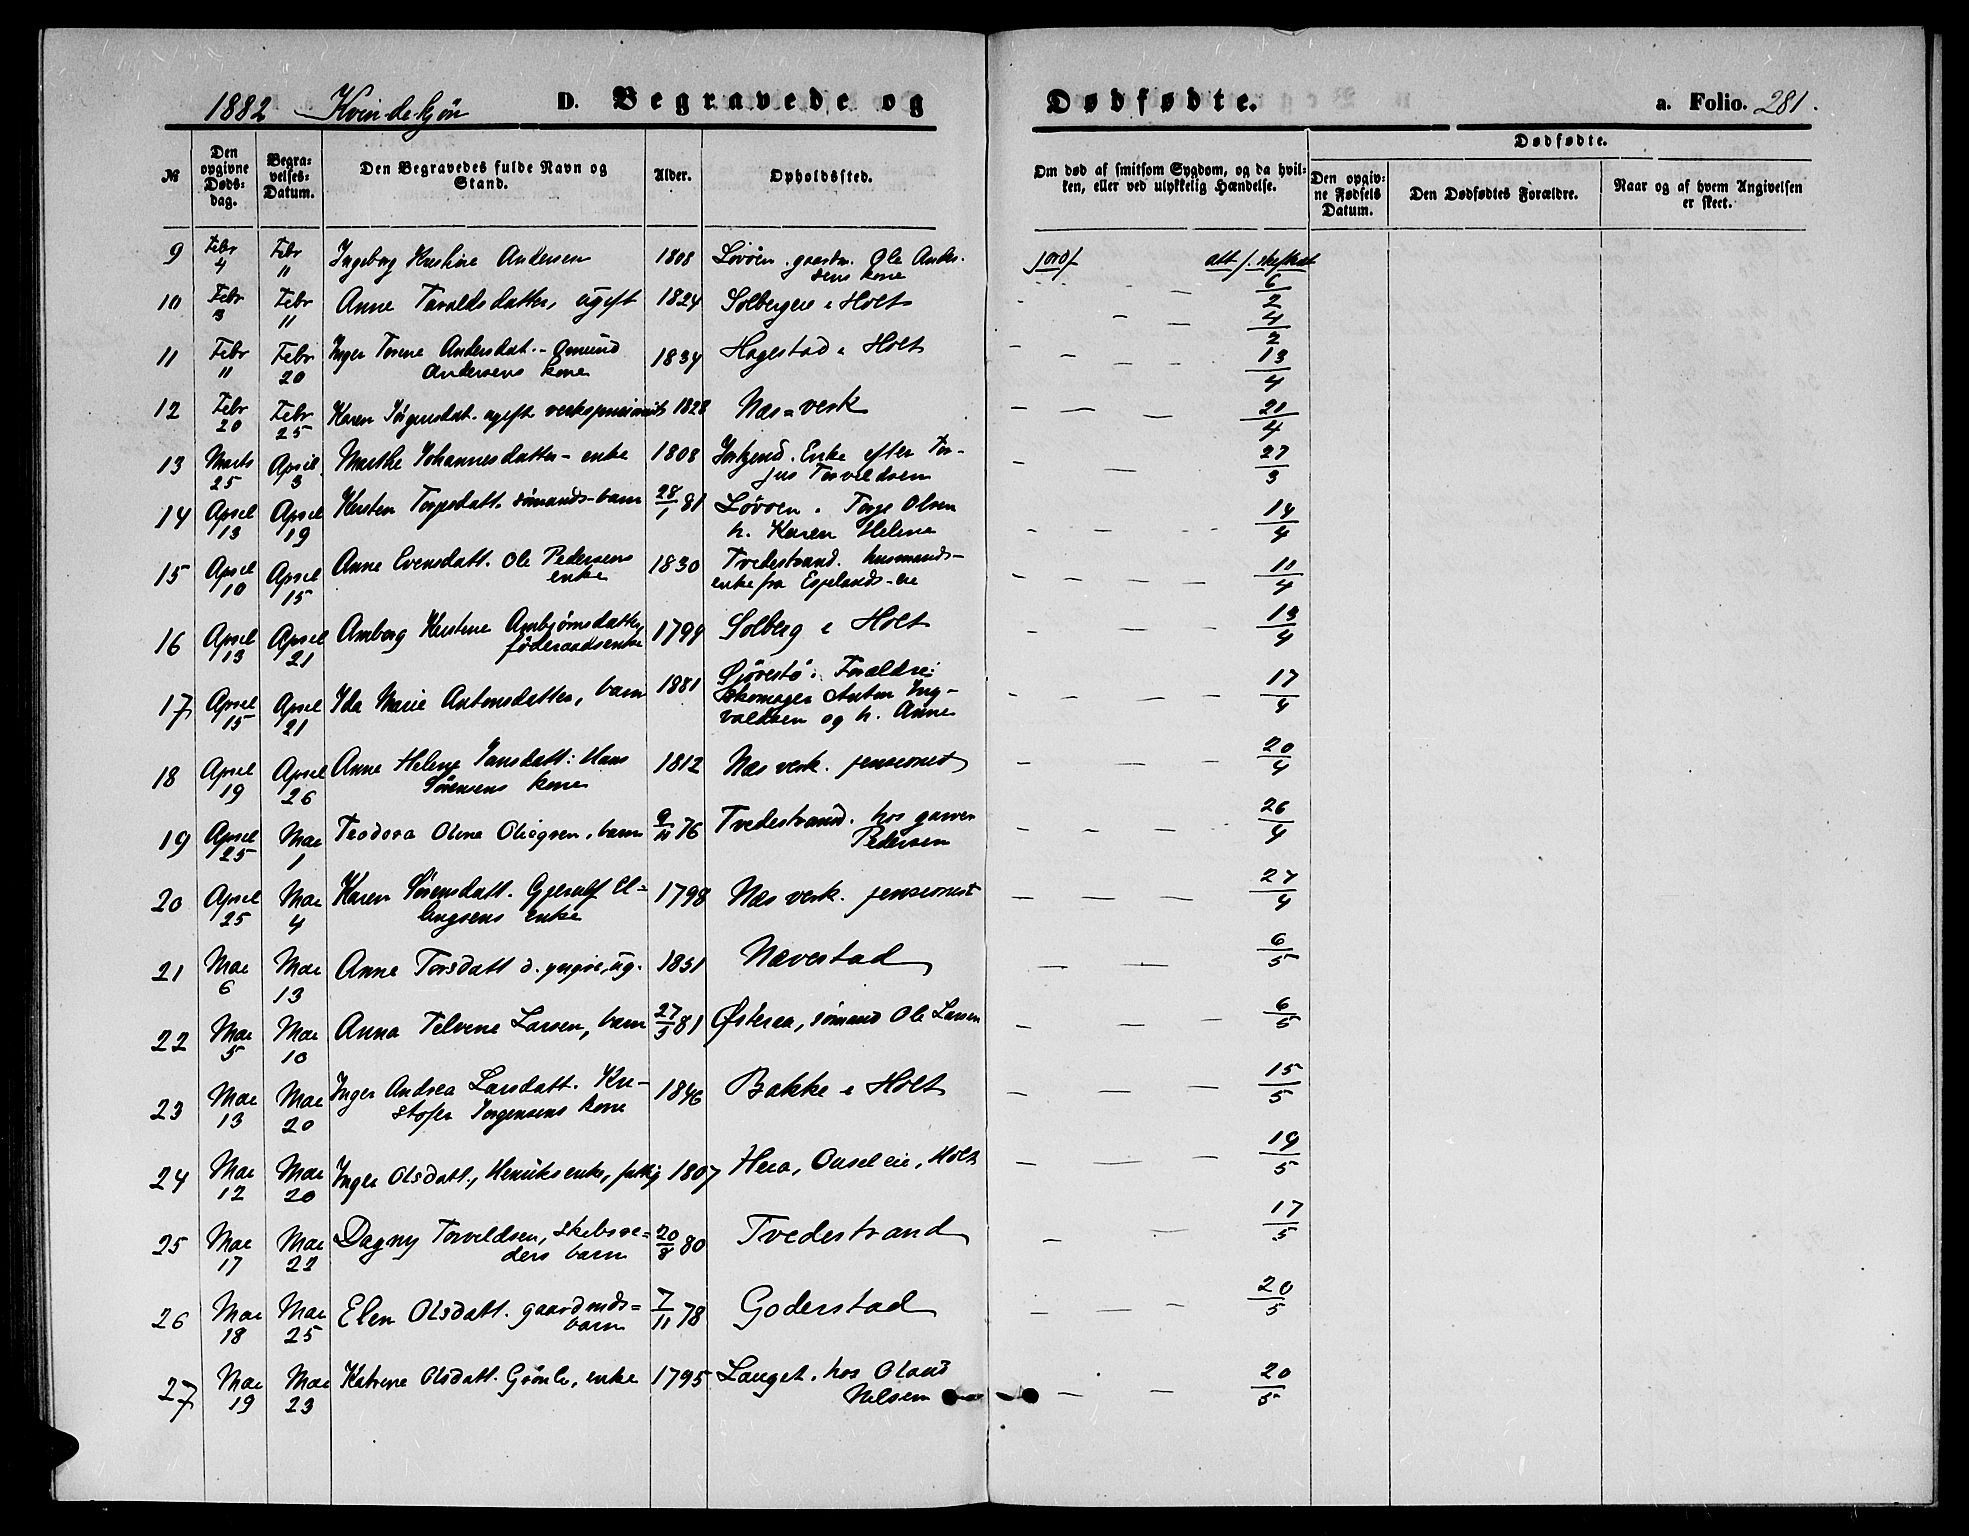 1882 Kvindekjøn D. Begravede og Dødfødte. a. Folio. 281.
№ Den opgivne Døds-dag. Begra-velses-Datum. Den Begravedes fulde Navn og Stand. Alder. Opholdssted. Om død af smitsom Sygdom, og da hvil-ken, eller ved ulykkelig Hændelse. Dødfødte. Den opgiv-ne Fødsels Datum. Den Dødfødtes Forældre. Naar og af hvem Angivelsen er skeet.
9 Febr 4 Febr 11 Ingeborg Kirstine Andersen 1808 Løvøen. gaardm. Ole Anders-
sens kone jordf att f. skifteret 6/2
10 Febr 3 Febr 11 Anne Taraldsdatter, ugift 1824 Solbergeie i Holt 4/2
11 Febr 11 Febr 20 Inger Torene Andersdat. - Amund
Andersens kone 1834 Hagestad i Holt 13/4
12 Febr 20 Febr 25 Karen Jørgensdat. ugift verkspensionist 1828 Næs verk 21/4
13 Marts 25 April 3 Marthe Johannesdatter - enke 1808 Enke efter Tor-
jus Torvildsen 27/3
14 April 13 April 19 Kirsten Torjesdatt. sømands-barn 28/1 81 Løvøen. Torje Olsen
h. Karen Helene 14/4
15 April 10 April 15 Anne Evensdatt. Ole Pedersens
enke 1830 Tvedestrand. husmands-
enke fra Espelands-eie 11/4
16 April 13 April 21 Anborg Kirstine Anbjørnsdatter,
føderaadsenke 1799 Solberg i Holt 13/4
17 April 15 April 21 Ida Marie Antonsdatter, barn 1881 Sjøvestø. Forældre:
Skomager Anton Ing-
valdsen og h. Anne 17/4
18 April 19 April 26 Anne Helene Jansdatt: Hans
Sørensens kone 1812 Næs verk. pensionist 20/4
19 April 25 Mai 1 Teodora Oline Olsen, barn 9/11 76 Tvedestrand. hos garver
Pedersen 26/4
20 April 25 Mai 4 Karen Sørensdatt. Gjerulf El-
lingsens enke 1798 Næs verk. pensionist 27/4
21 Mai 6 Mai 13 Anne Torsdatt d. yngre, ug. 1851 Nævestad 6/5
22 Mai 5 Mai 10 Anna Telvine Larsen, barn 27/5 81 Østeraa, sømand Ole Larsen 6/5
23 Mai 13 Mai 20 Inger Andrea Larsdatt. Kri-
stofer Jørgensens kone 1846 Bakke i Holt 15/5
24 Mai 12 Mai 20 Inger Olsdatt., Henriks enke, fattig 1807 Heia, eie, Holt 19/5
25 Mai 17 Mai 22 Dagny Torvildsen, skibsre-
ders barn 20/8 80 Tvedestrand 17/5
26 Mai 18 Mai 25 Elen Olsdatt. gaardmds=
barn 7/11 78 Goderstad 20/5
27 Mai 19 Mai 23 Katrine Olsdatt. Grønli, enke 1795 Lauget. hos Olaus
Nilsen 20/5